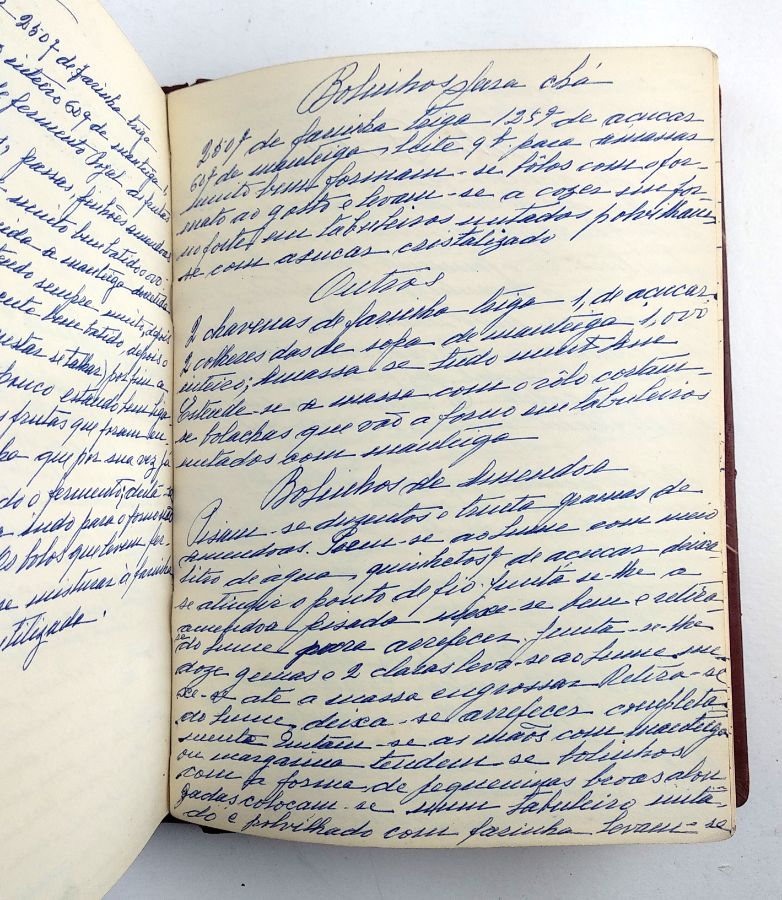 250g de farinha triga
inteiro 60g de manteiga 1,
de fermento Royal de frutas
passas, pinhões amendoas
muito bem batido o ovo
a manteiga
tendo sempre muito, depois
bem batido, depois o
se talhar) por fim a
pouco estando bem liga
s frutas que foram en
que por sua vez ja
do o fermento; deita-se
tudo para o forno não
os bolos que levem fer
se misturar á farinha
utilizada.
Bolinhos para chá
250g de farinha triga 125g de açucar
60g de manteiga, leite q b. para amassar
muito bem formam-se bôlos com o for-
mato ao gosto e levam-se a cozer em for-
no forte em tabuleiros untados polvilham
se com açucar cristalizado
Outros
2 chavenas de farinha triga 1, de açucar,
2 colheres das de sopa de manteiga 1, ovo
inteiro; Amassa se tudo muito bem
Estende-se a massa com o rôlo cortam-
se bolachas que vão a forno em tabuleiros
untados com manteiga
Bolinhos de Amendoa
Pisam-se duzentos e trinta gramas de
amendoas. Põem-se ao lume com meio
litro de água, quinhetos g de açucar deixa
se atingir o ponto de fio. Junta se-lhe a
amendoa pisada mexe-se bem e retira
se do lume para arrefecer. Junta-se-lhe
doze gemas e 2 claras leva-se ao lume me
xe-se até a massa engrossar Retira-se
do lume, deixa-se arrefecer completa
mente Untam-se as mãos com manteiga
ou margarina tendem-se bolinhos
com a forma de pequeninas broas alon
gadas colocam-se num tabuleiro unta-
do e polvilhado com farinha Levam-se